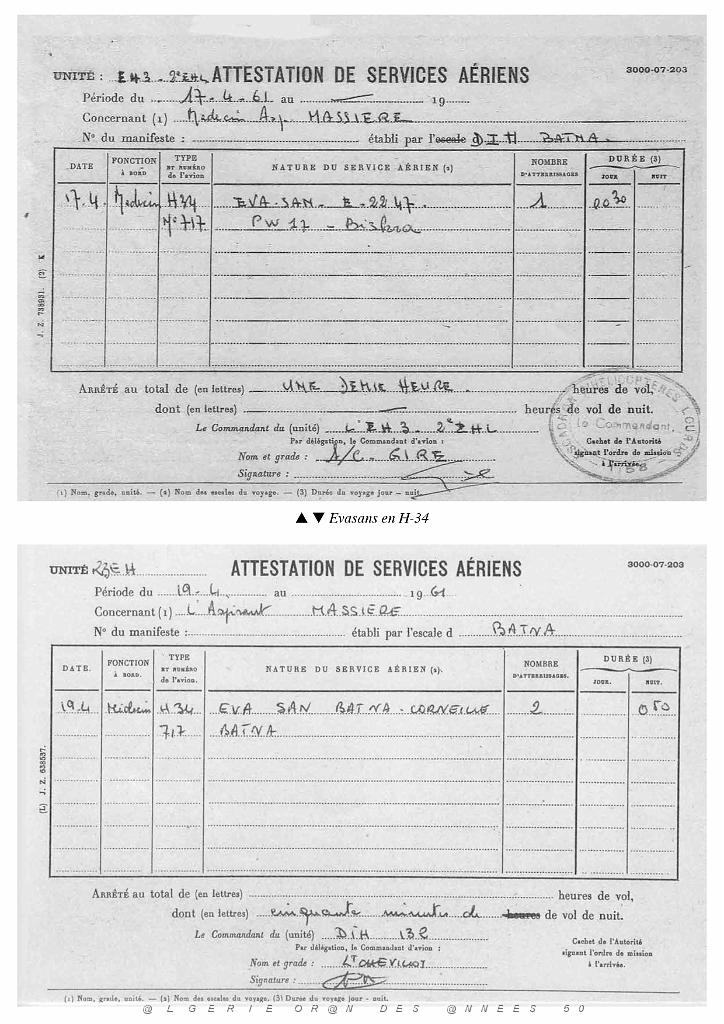 UNITÉ : EH3 - 2e EHL ATTESTATION DE SERVICES AÉRIENS 3000-07-203
Période du 17-4-61 au 19
Concernant (1) Medecin Asp. MASSIERE
No du manifeste : établi par l'escale DIH BATNA
DATE FONCTION À BORD TYPE ET NUMÉRO de l'avion NATURE DU SERVICE AÉRIEN (2) NOMBRE D'ATTERRISSAGES DURÉE (3) JOUR NUIT
17.4. Medecin H34 EVA-SAN - E-2247 1 00 30
No 717 PW 17 - Biskra
J. Z. 738931. (2) K
ARRÊTÉ au total de (en lettres) UNE DEMIE HEURE heures de vol,
dont (en lettres) heures de vol de nuit.
Le Commandant du (unité) L'EH3 - 2e EHL
Par délégation, le Commandant d'avion :
Nom et grade : A/C - GIRE
Signature :
Cachet de l'Autorité
signant l'ordre de mission
à l'arrivée.
HELICOPTERES LOURDS
Le Commandant,
(1) Nom, grade, unité. — (2) Nom des escales du voyage. — (3) Durée du voyage jour - nuit.
▲ ▼ Evasans en H-34
UNITÉ 23EH ATTESTATION DE SERVICES AÉRIENS 3000-07-203
Période du 19-4. au 1961
Concernant (1) L'Aspirant MASSIERE
No du manifeste : établi par l'escale d BATNA
DATE. FONCTION À BORD. TYPE ET NUMÉRO de l'avion. NATURE DU SERVICE AÉRIEN (2). NOMBRE D'ATTERRISSAGES. DURÉE (3) JOUR. NUIT.
19.4 Médecin H34 EVA SAN BATNA - CORNEILLE 2 0 50
717 BATNA
(L) J. Z. 638537.
ARRÊTÉ au total de (en lettres) heures de vol,
dont (en lettres) cinquante minutes de heures de vol de nuit.
Le Commandant du (unité) DIH 132
Par délégation, le Commandant d'avion :
Nom et grade : LT CHEVILLOT
Signature :
Cachet de l'Autorité
signant l'ordre de mission
à l'arrivée.
(1) Nom, grade, unité. — (2) Nom des escales du voyage. (3) Durée du voyage jour - nuit.
@ L G E R I E O R @ N D E S @ N N E E S 5 0